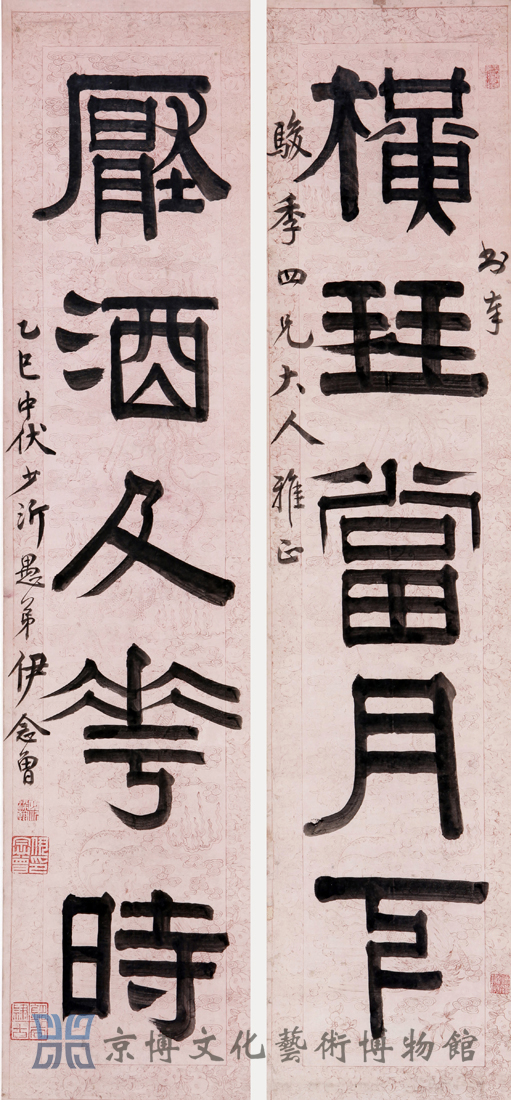 書奉
橫琴當月下
駿季四兄大人雅正
壓酒及花時
乙巳中伏少沂愚弟伊念曾
京博文化藝術博物館